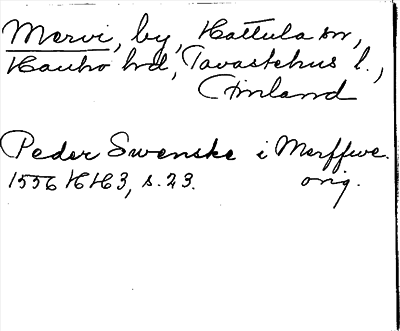 Mervi, by, Hattula sn,
Hauho hd, Tavastehus l.,
Finland
Peder Swenske i Merffwe.
1556 HH3, s. 23. orig.